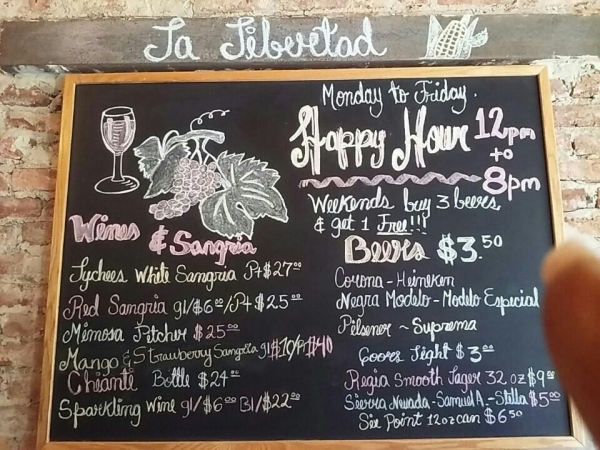 La Libertad
Monday to Friday.
Happy Hour 12pm to 8pm
Weekends buy 3 beers
& get 1 Free!!!
Wines & Sangria
Lychees White Sangria Pt $27.00
Red Sangria gl/$6.00/Pt $25.00
Mimosa Pitcher $25.00
Mango & Strawberry Sangria gl $10/Pt $40
Chianti Bottle $24.00
Sparkling Wine gl/$6.00 Bl/$22.00
Beers $3.50
Corona - Heineken
Negra Modelo - Modelo Especial
Pilsener ~ Suprema
Coors Light $3.00
Regia Smooth Lager 32 oz $9.00
Sierra Nevada - Samuel A. - Stella $5.00
Six Point 12oz can $6.50